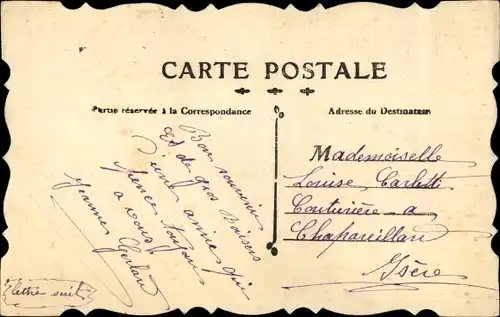 CARTE POSTALE
Partie réservée à la Correspondance
Adresse du Destinataire
Bon souvenir
et de gros Baisers
d'une amie qui
pense toujours
a vous
Jeanne
lettre suit
Mademoiselle
Louise Carletti
Couturière a
Chapareillan
Isère